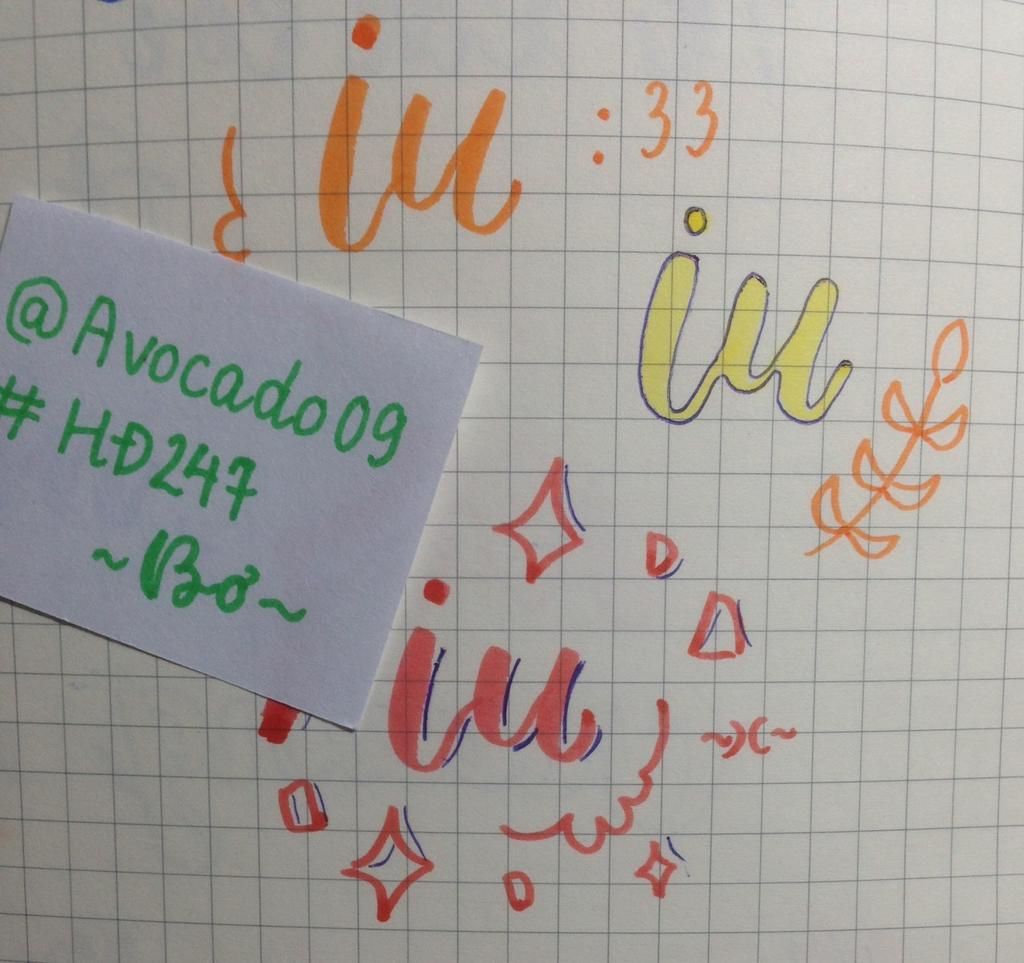 iu :33
iu
@Avocado09
#HĐ247
~Bơ~
iu